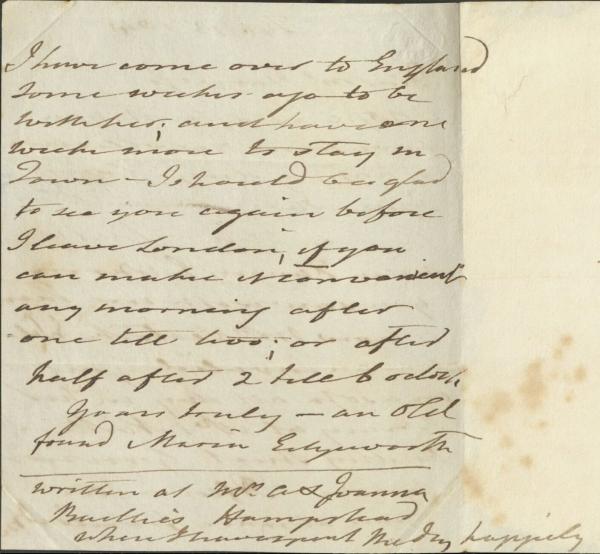 I have come over to England
some weeks ago to be
with her; and have one
week more to stay in
Town – I should be glad
to see you again before
I leave London, if you
can make it convenient
any morning after
one till two; or after
half after 2 till 6 oclock
Yours truly – an old
friend Maria Edgeworth
written at Mrs A & Joanna
Baillie's Hampstead
where I have spent the day happily